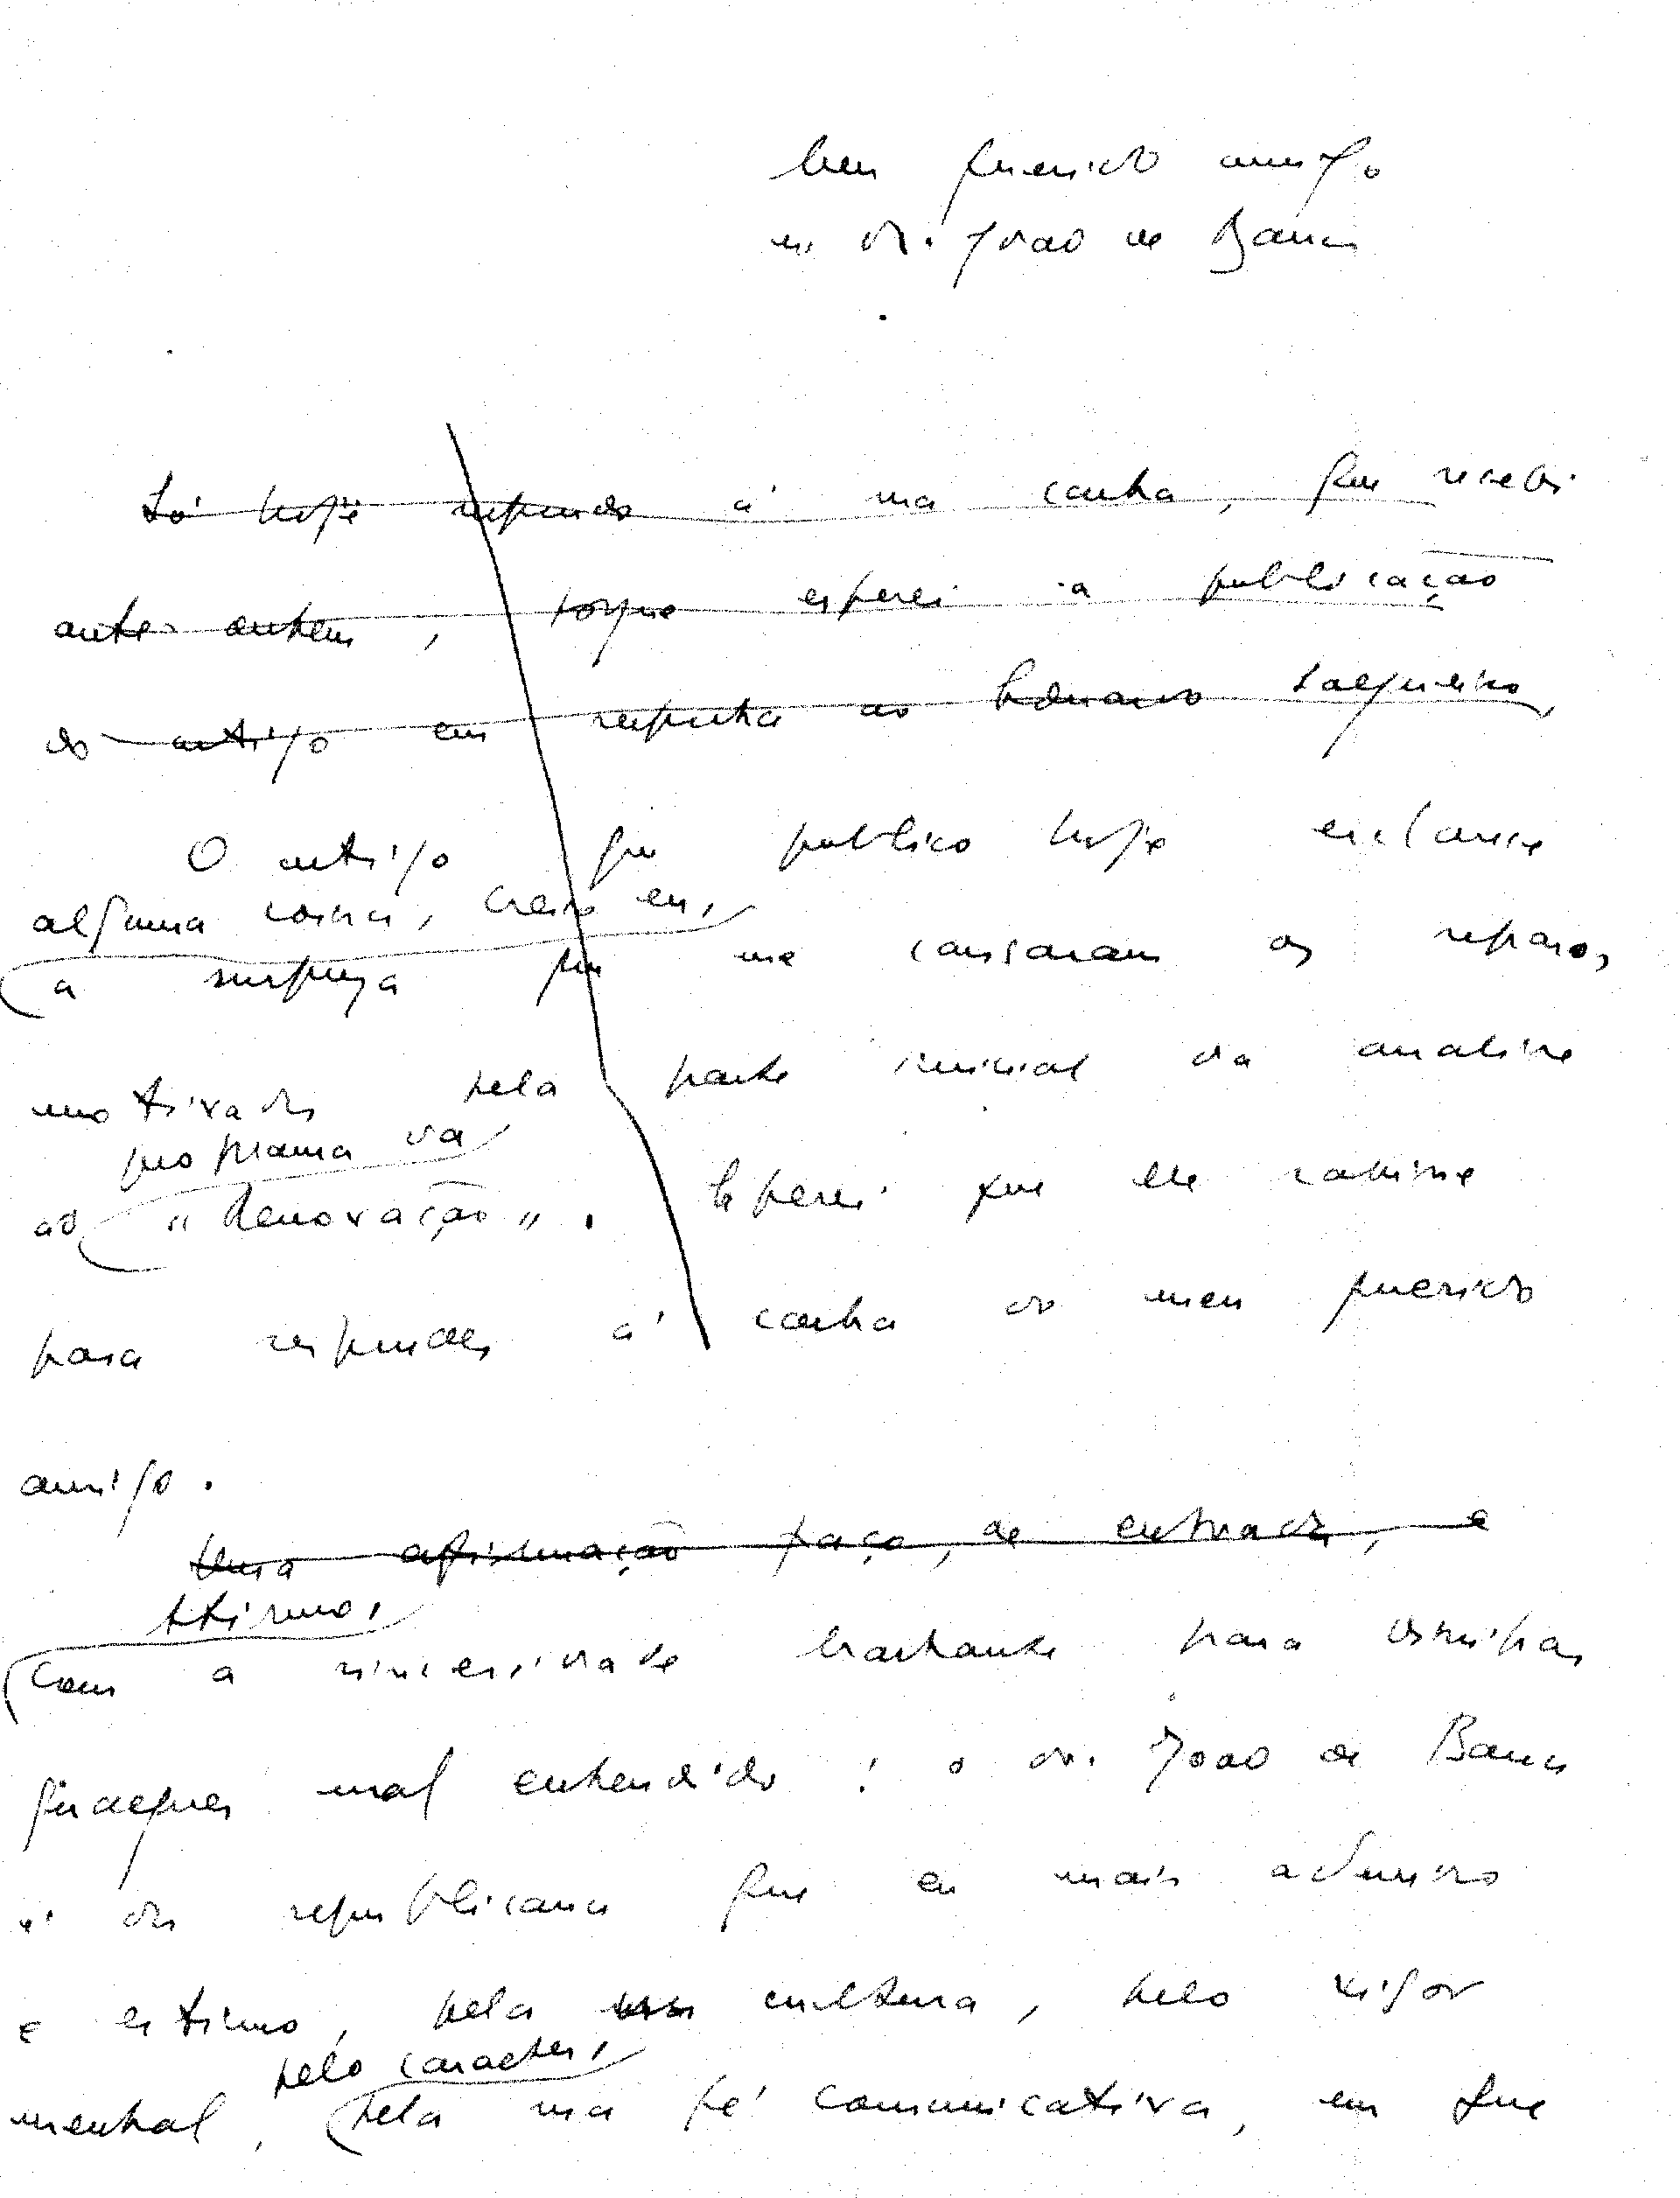 Meu querido amigo
sr. dr. João de Barros
Só hoje respondo á sua carta, que recebi
ante-ontem, porque esperei a publicação
do artigo em resposta ao Eduardo Salgueiro,
O artigo que publico hoje esclarece
alguma coisa, creio eu,
a surpreza que me causaram os reparos,
motivados pela parte inicial da analise
programa da
ao "Renovação". Esperei que ele sahisse
para responder á carta do meu querido
amigo.
Uma afirmação faço, de entrada, e
Afirmo,
com a sinceridade bastante para dissipar
qualquer mal entendido: o dr. João de Barros
é dos republicanos que eu mais admiro
e estimo, pela sua cultura, pelo vigor
pelo caracter,
mental, pela sua fé comunicativa, em que